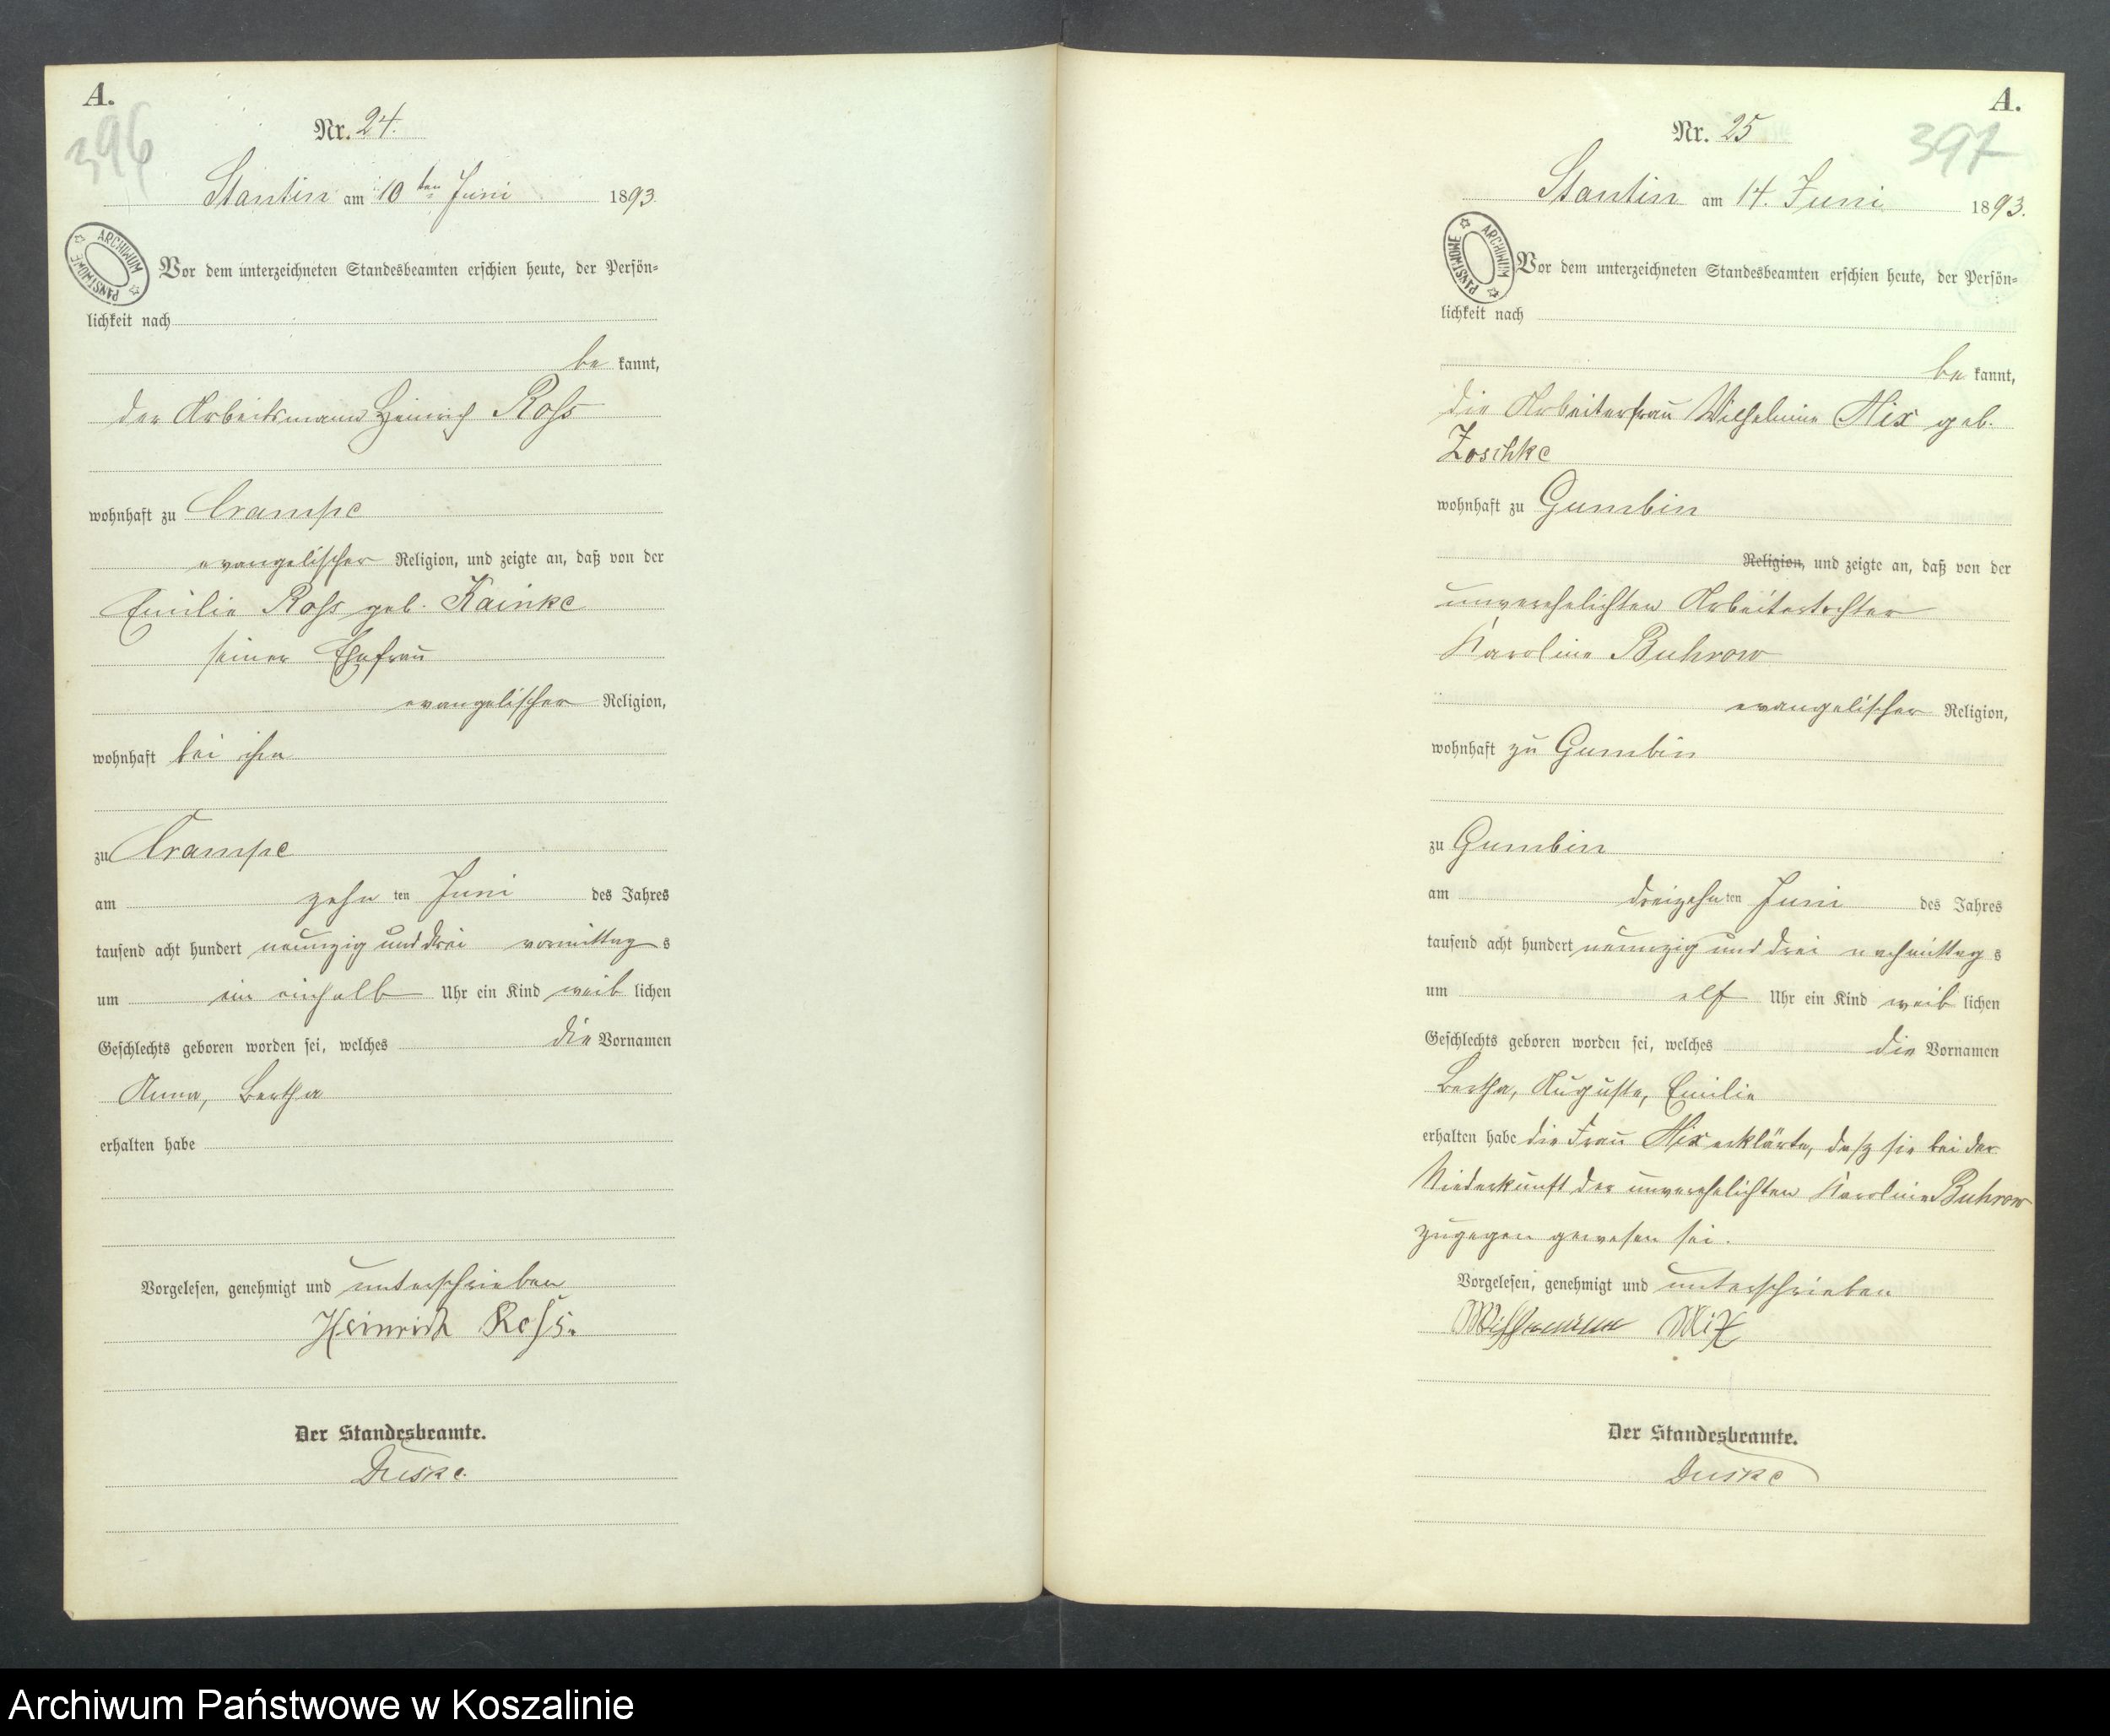 A.
396
Nr. 24.
Stantin am 10ten Juni 1893.
ARCHIWUM PAŃSTWOWE
Vor dem unterzeichneten Standesbeamten erschien heute, der Persön-
lichkeit nach
be kannt,
der Arbeitsmann Heinrich Roſs
wohnhaft zu Crampe
evangelischer Religion, und zeigte an, daß von der
Emilie Roſs geb. Kainke
seiner Ehefrau
evangelischer Religion,
wohnhaft bei ihm
zu Crampe
am zehn ten Juni des Jahres
tausend acht hundert neunzig und drei vormittag s
um ein einhalb Uhr ein Kind weib lichen
Geschlechts geboren worden sei, welches die Vornamen
Anna, Bertha
erhalten habe
Vorgelesen, genehmigt und unterschrieben
Heinrich Roſs.
Der Standesbeamte.
Duske.
A.
397
Nr. 25
Stantin am 14. Juni 1893.
ARCHIWUM PAŃSTWOWE
Vor dem unterzeichneten Standesbeamten erschien heute, der Persön-
lichkeit nach
be kannt,
die Arbeiterfrau Wilhelmine Mix geb.
Zoschke
wohnhaft zu Gumbin
Religion, und zeigte an, daß von der
unverehelichten Arbeitertochter
Karoline Buhrow
evangelischer Religion,
wohnhaft zu Gumbin
zu Gumbin
am dreizehn ten Juni des Jahres
tausend acht hundert neunzig und drei nachmittag s
um elf Uhr ein Kind weib lichen
Geschlechts geboren worden sei, welches die Vornamen
Bertha, Auguste, Emilie
erhalten habe die Frau Mix erklärte, daß sie bei der
Niederkunft der unverehelichten Karoline Buhrow
zugegen gewesen sei.
Vorgelesen, genehmigt und unterschrieben
Wilhelmine Mix
Der Standesbeamte.
Duske
Archiwum Państwowe w Koszalinie